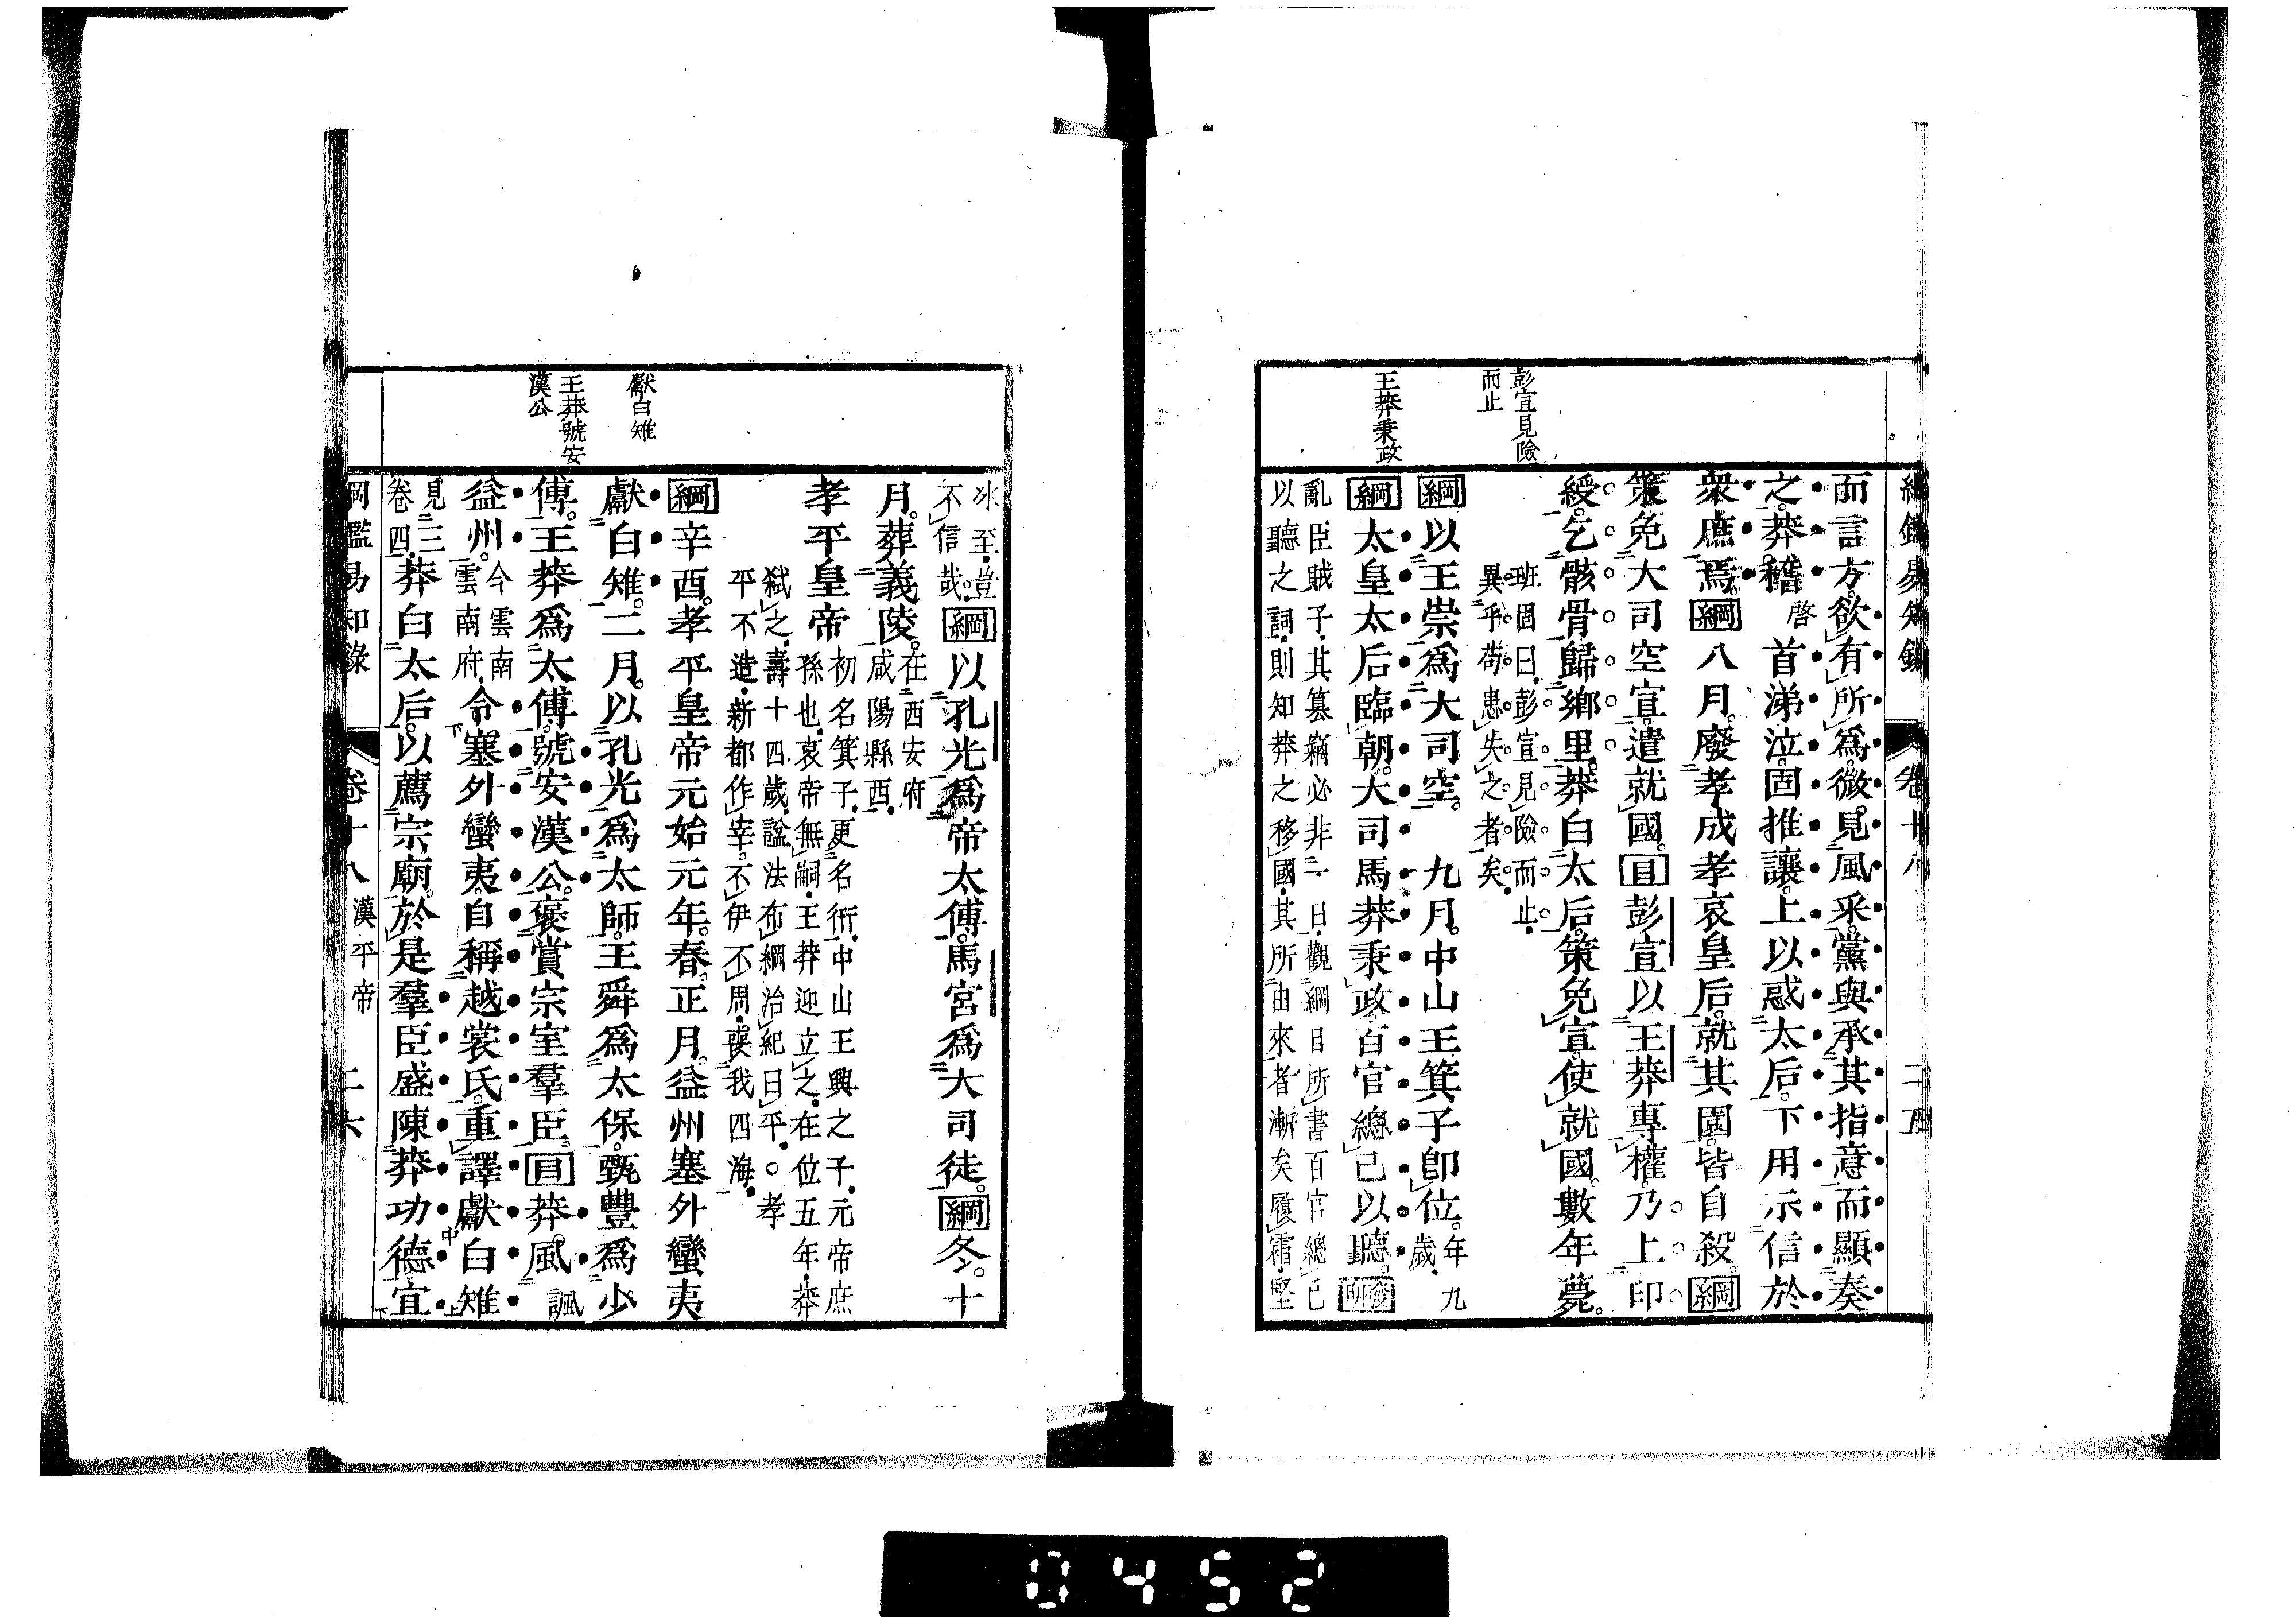 綱鑑易知錄 卷十八 二五
彭宣見險
而止
王莽秉政
而言方欲有所為微見風采黨與承其指意而顯奏
之莽稽啓首涕泣固推讓上以惑太后下用示信於
衆庶焉綱八月廢孝成孝哀皇后就其園皆自殺綱
策免大司空宣遣就國目彭宣以王莽專權乃上印
綬乞骸骨歸鄉里莽白太后策免宣使就國數年薨
班固曰彭宣見險而止
異乎茍患失之者矣
綱以王崇爲大司空 九月中山王箕子卽位年九
歲
綱太皇太后臨朝大司馬莽秉政百官總已以聽發明
亂臣賊子其篡竊必非一日觀綱目所書百官總已
以聽之詞則知莽之移國其所由來者漸矣履霜堅
獻白雉
王莽號安
漢公
氷至豈
不信哉綱以孔光爲帝太傅馬宮爲大司徒綱冬十
月葬義陵在西安府
咸陽縣西
孝平皇帝初名箕子更名衎中山王興之子元帝庶
孫也哀帝無嗣王莽迎立之在位五年莽
弑之壽十四歲諡法布綱治紀曰平○孝
平不造新都作宰不伊不周喪我四海
綱辛酉孝平皇帝元始元年春正月益州塞外蠻夷
獻白雉二月以孔光爲太師王舜爲太保甄豐爲少
傅王莽爲太傅號安漢公褒賞宗室羣臣目莽風諷
益州今雲南
雲南府令塞外蠻夷自稱越裳氏重譯獻白雉
見三
卷四莽白太后以薦宗廟於是羣臣盛陳莽功德宜
綱鑑易知錄 卷十八 漢平帝 二六
0452